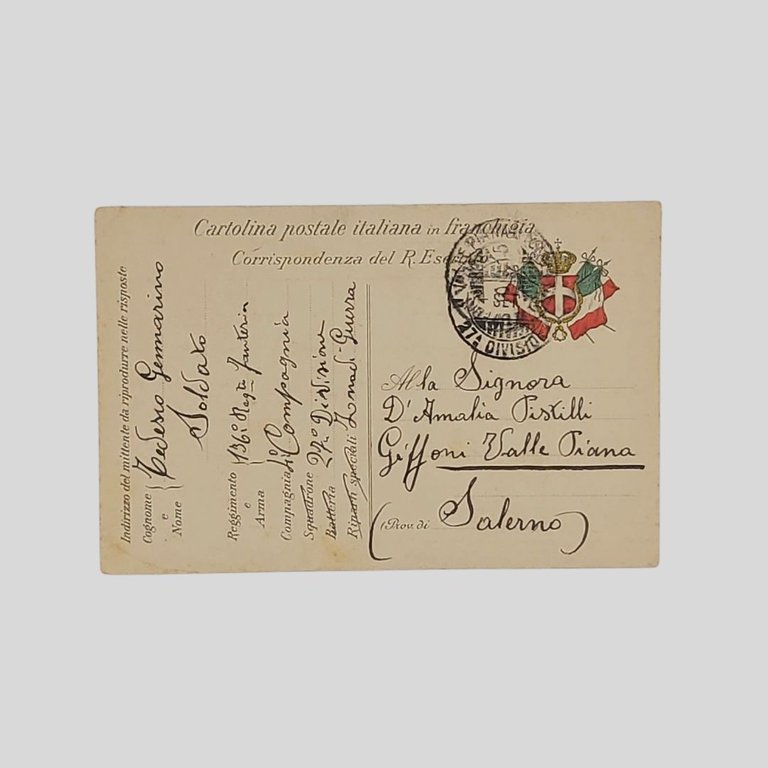 Cartolina postale italiana in franchigia
Corrispondenza del R. Eser
27A DIVISIO
Alla Signora
D'Amalia Pistilli
Giffoni Valle Piana
(Prov. di Salerno)
Indirizzo del mittente da riprodurre nelle risposte
Cognome e Nome Tedesco Gennarino
Soldato
Reggimento e Arma 136º Regto Fanteria
Compagnia Compagnia
Squadrone 27º Divisione
Batteria
Riparti speciali Zona di Guerra